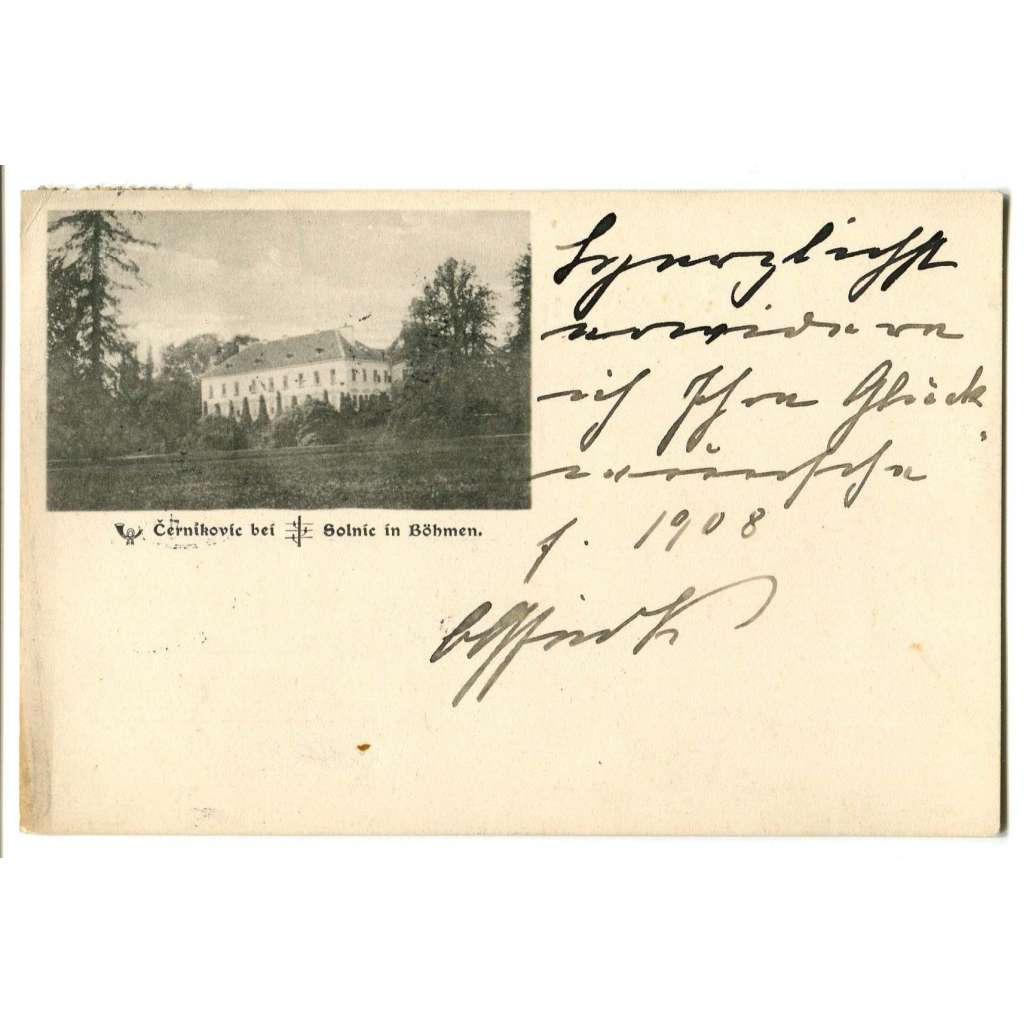 Černikovic bei Solnic in Böhmen.
Herzlichst
erwidere
ich Ihre Glück-
wünsche
f. 1908